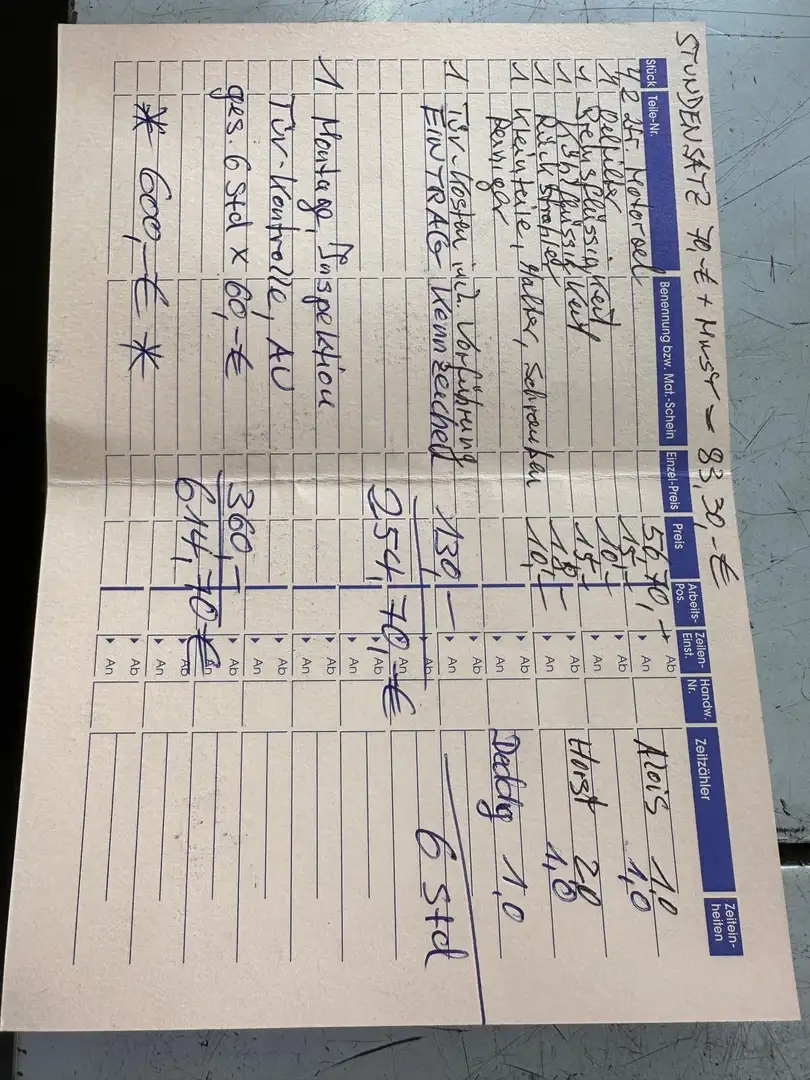 STUNDENSATZ 70,-€ + MwSt - 83,30,-€
Stück Teile-Nr. Benennung bzw. Mat.-Schein Einzel-Preis Preis Arbeits-Pos. Zeilen-Einst. Handw. Nr. Zeitzähler Zeitein-heiten
Motoroel 56,70,- Ab
1 Oelfilter 15,- An Alois 1,0
1 Bremsflüssigkeit 10,- Ab 1,0
1 Kühlflüssigkeit 15,- An
1 Rückstrahler 18,- Ab Horst 2,0
1 Kleinteile, Halter, Schrauben 10,- An 1,0
Reiniger
1,0
1 Tüv-Kosten incl. Vorführung 130,- An
EINTRAG Kennzeichen Ab 6 Std
An
254,70,-€ Ab
An
1 Montage, Inspektion Ab
An
Tüv-Kontrolle, AU Ab
An
ges. 6 Std x 60,-€ 360,- Ab
An
614,70€ Ab
An
* 600,-€ * Ab
An